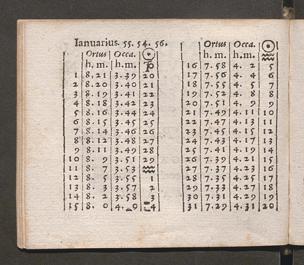 Ianuarius. 55. 54. 56.
Ortus Occa. ☉
h. m. h. m. ♑
1 8. 21 3. 39 20
2 8. 20 3. 40 21
3 8. 19 3. 41 22
4 8. 18 3. 42 23
5 8. 16 3. 44 24
6 8. 15 3. 45 25
7 8. 14 3. 46 26
8 8. 12 3. 48 27
9 8. 11 3. 49 28
10 8. 9 3. 51 29
11 8. 7 3. 53 ♒
12 8. 5 3. 55 1
13 8. 3 3. 57 2
14 8. 2 3. 58 3
15 8. 0 4. 0 4
Ortus Occa. ☉
h. m. h. m. ♒
16 7. 58 4. 2 5
17 7. 56 4. 4 6
18 7. 55 4. 5 7
19 7. 52 4. 8 8
20 7. 51 4. 9 9
21 7. 49 4. 11 10
22 7. 47 4. 13 11
23 7. 45 4. 15 12
24 7. 43 4. 17 13
25 7. 41 4. 19 14
26 7. 39 4. 21 15
27 7. 37 4. 23 16
28 7. 35 4. 25 17
29 7. 33 4. 27 18
30 7. 31 4. 29 19
31 7. 29 4. 31 20